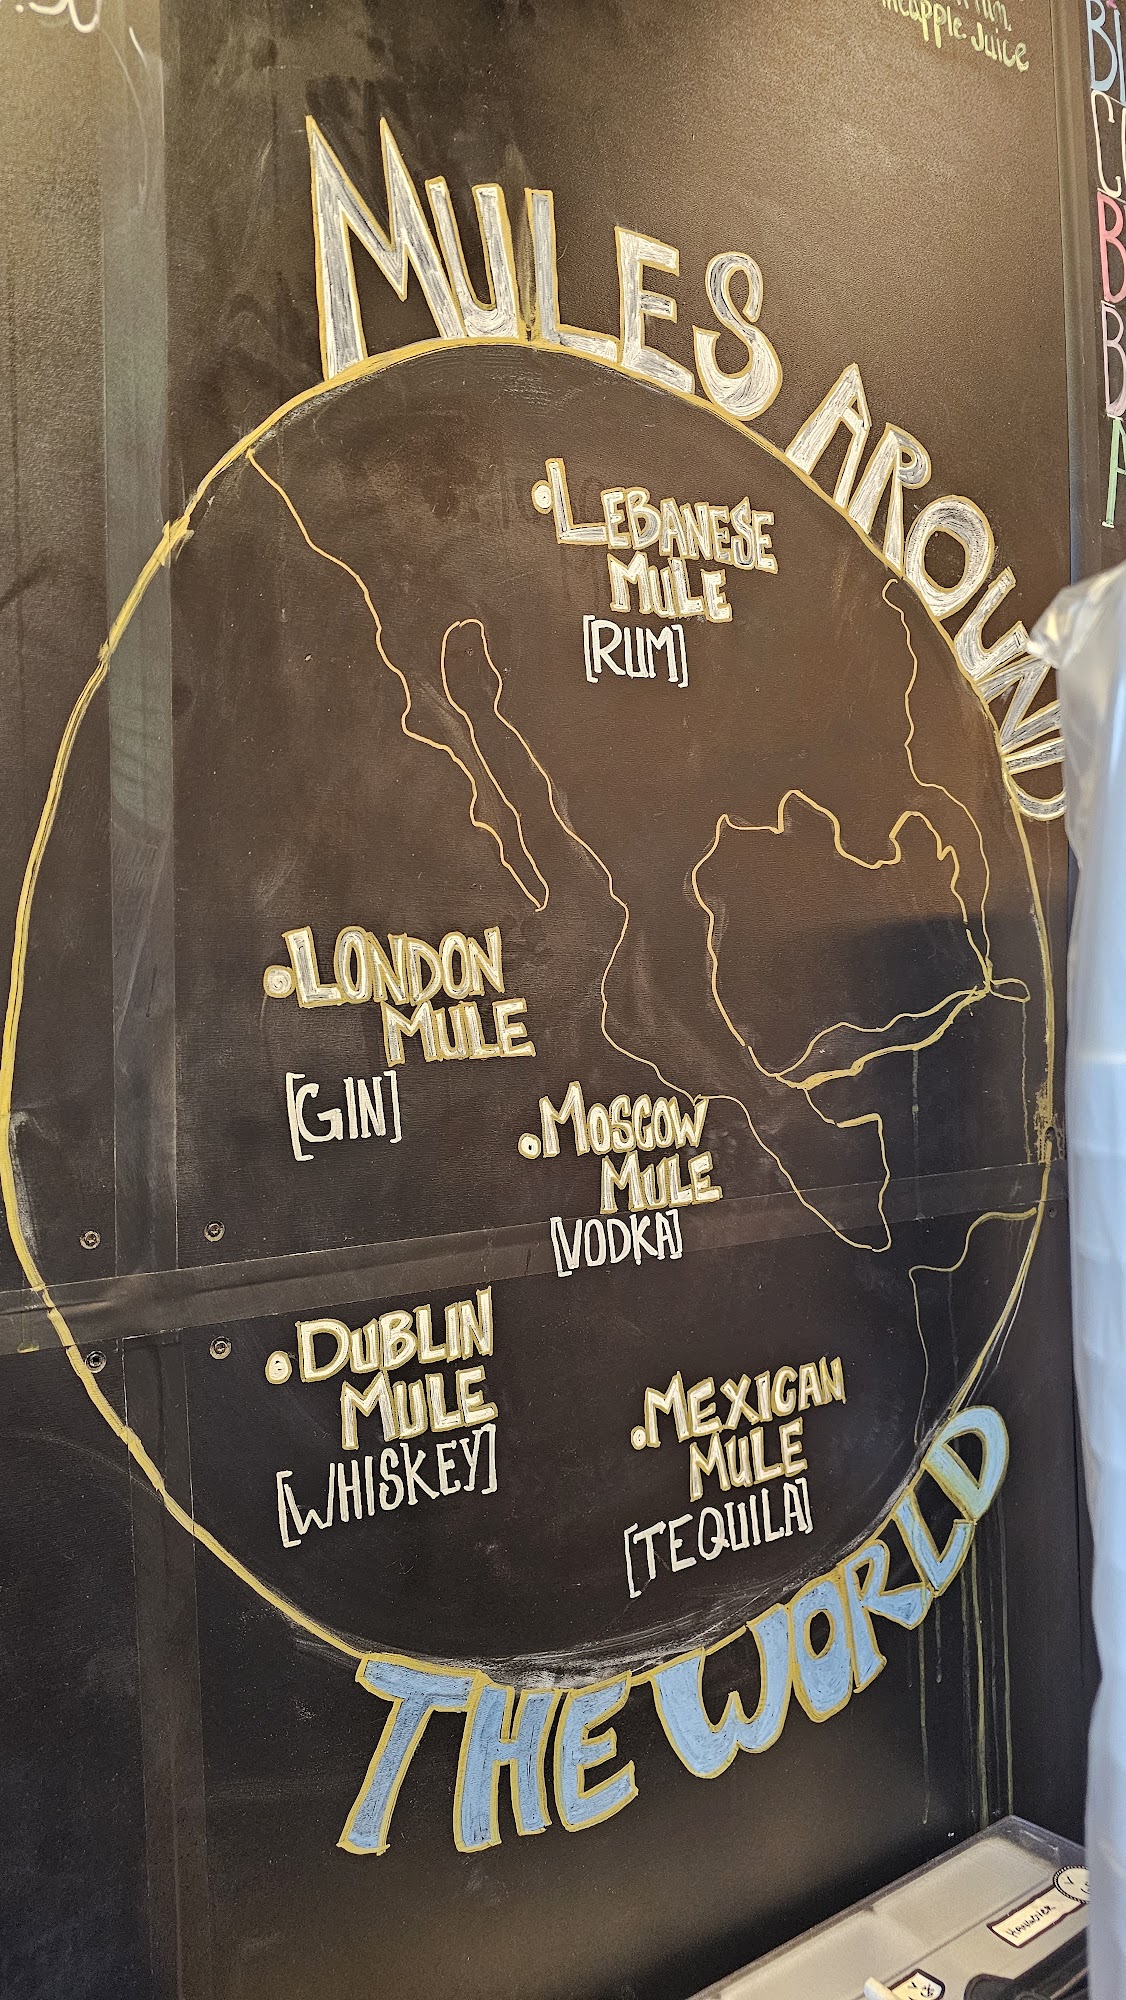 MULES AROUND
LEBANESE
MULE
[RUM]
LONDON
MULE
[GIN]
MOSCOW
MULE
[VODKA]
DUBLIN
MULE
[WHISKEY]
MEXICAN
MULE
[TEQUILA]
THE WORLD
Juice